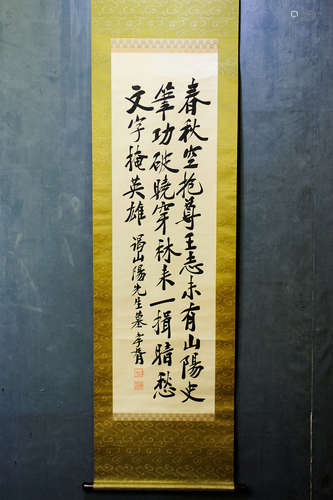 春秋空抱尊王志未有山陽史
筆功破曉穿林来一揖暗愁
文字掩英雄 謁山陽先生墓 孝胥